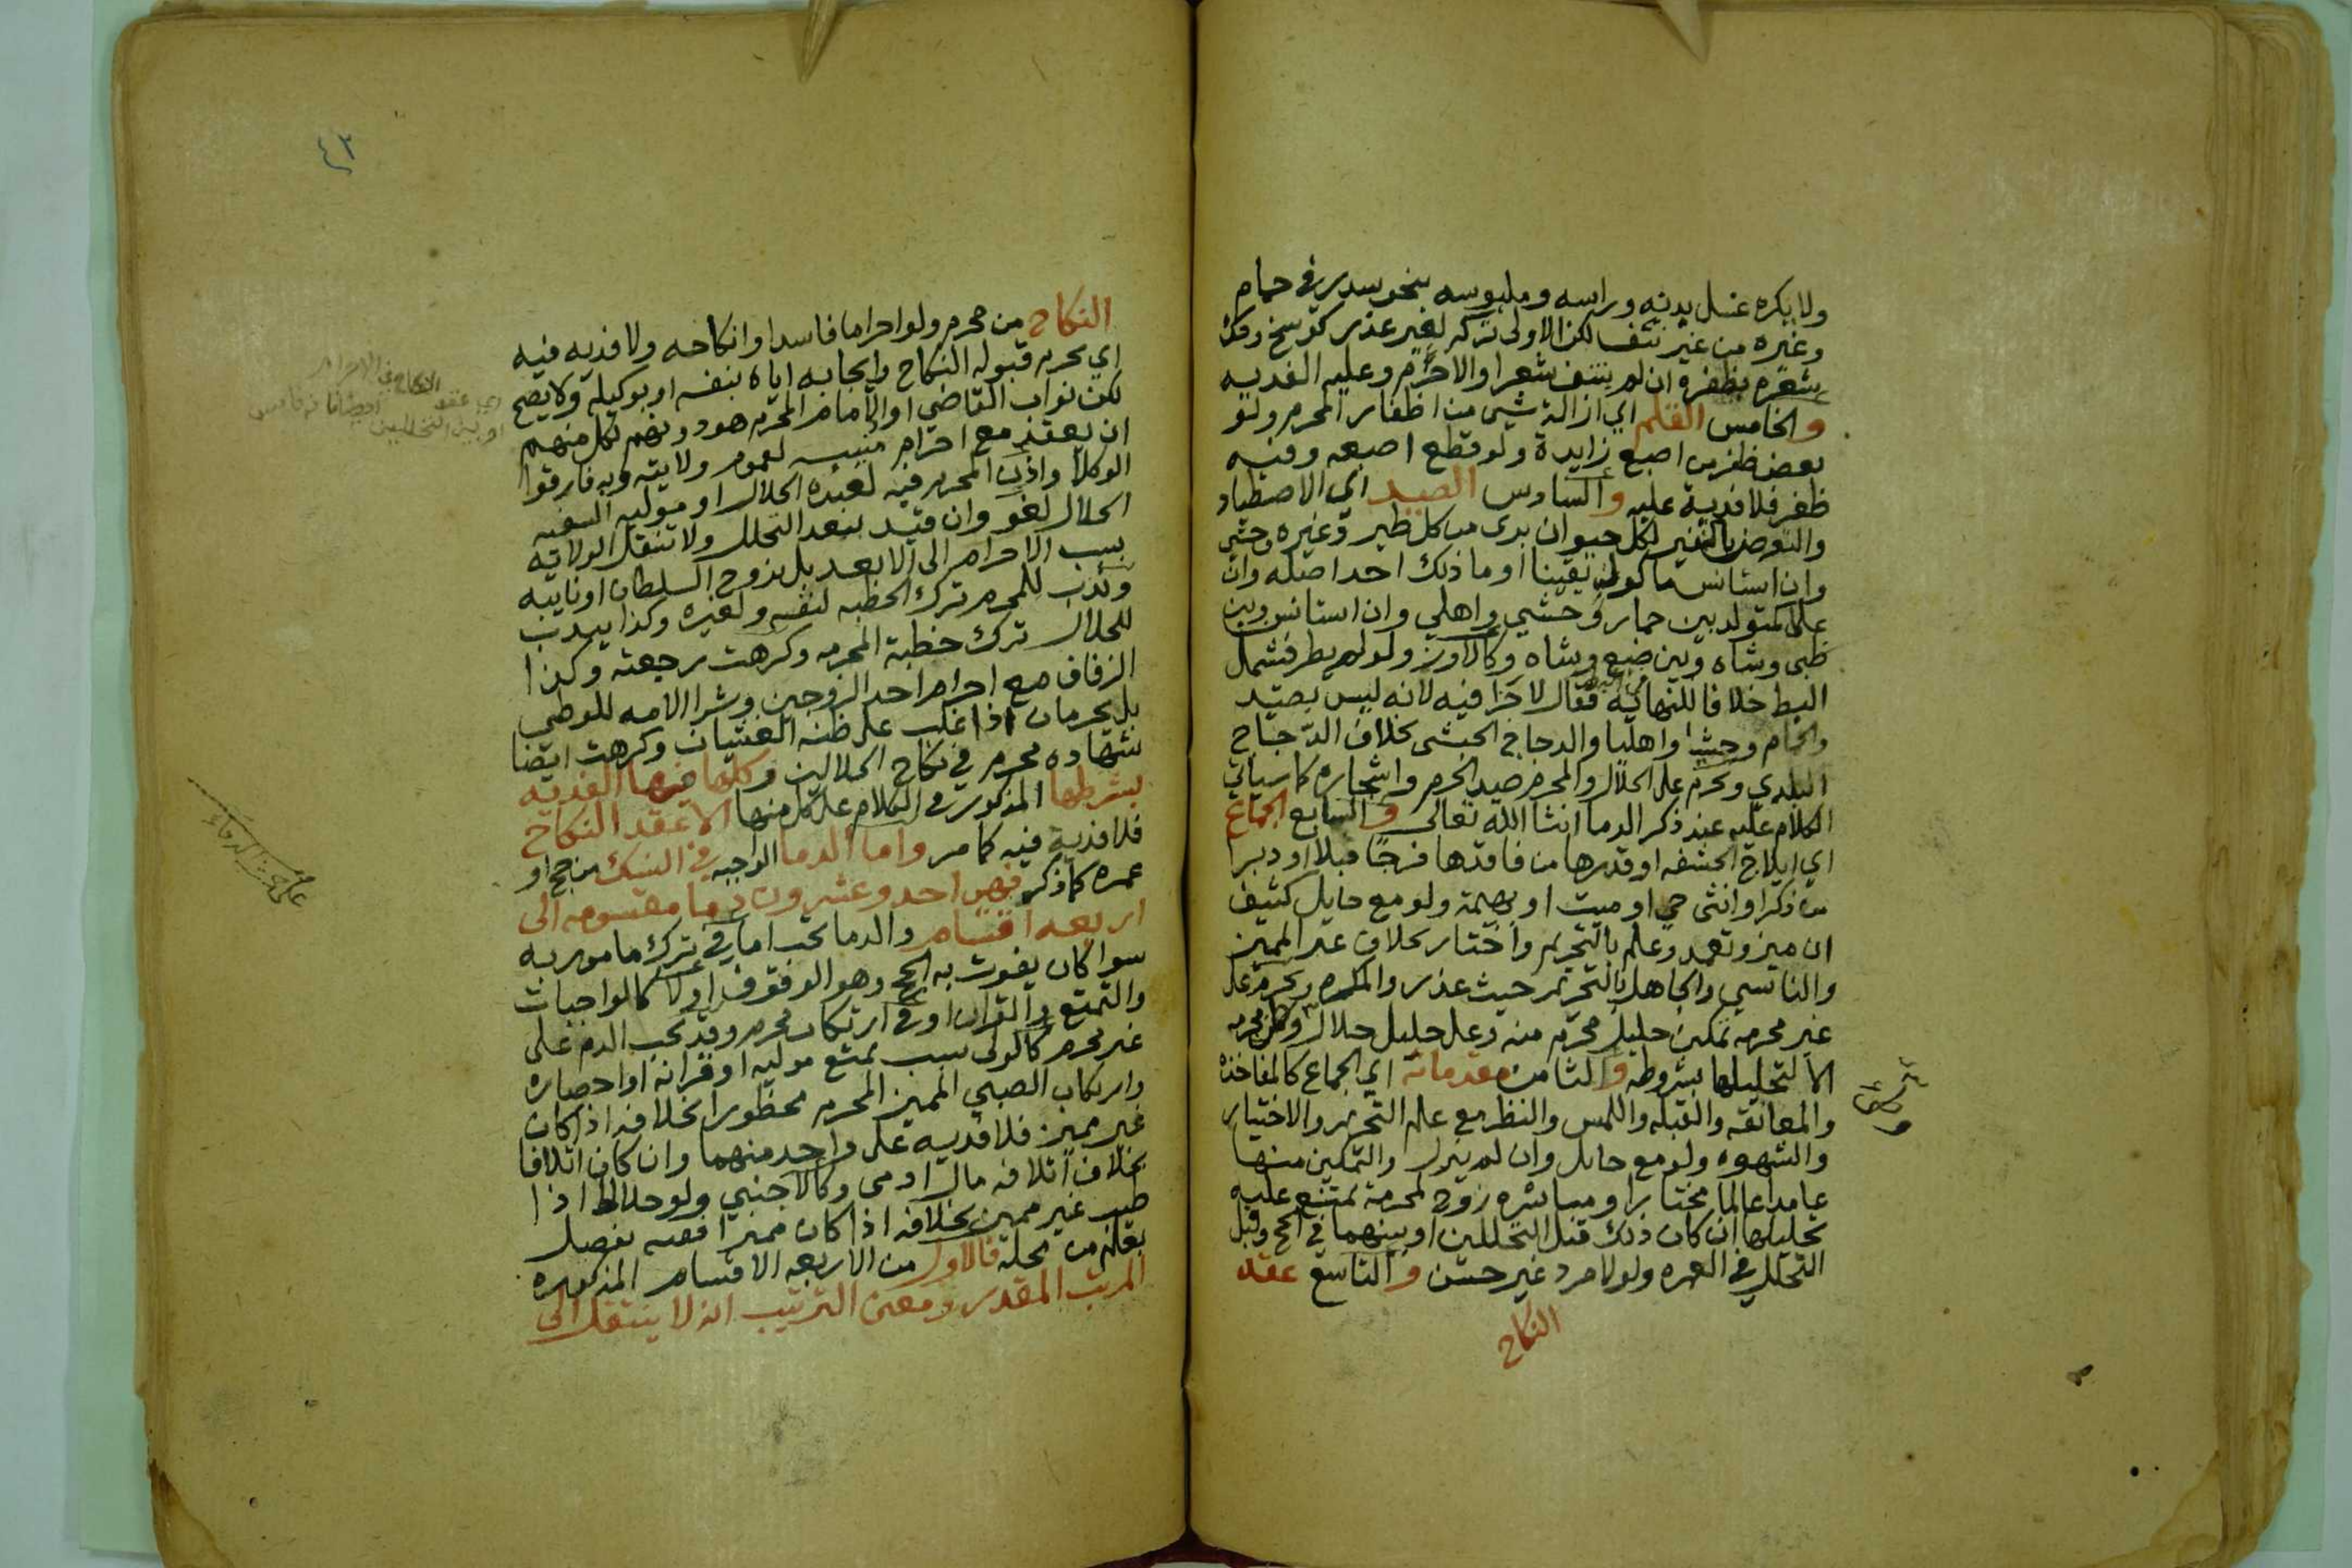 ولا يكره غسل بدنه وراسه وملبوسه بنحو سدر في حمام
وغيره من غير نتف لكن الاولى تركه لغير عذر كوسخ وحك
شعره بظفره ان لم ينتف شعرا والا حرم وعليه الفديه
والخامس القلم اي ازالة شي من اظفار المحرم ولو
بعض ظفر من اصبع زايدة ولو قطع اصبعه وفيه
ظفر فلا فدية عليه والسادس الصيد اي الاصطياد
والتعرض بالتنفير لكل حيوان بري من كل طير وغيره وحشي
وان استانس ماكول يقينا او ما ذلك احد اصله وان
علا كمتولد بين حمار وحشي واهلي وان استانس وبين
ظبي وشاه وبين ضبع وشاه وكالاوز ولو لم يطر فشمل
البط خلافا للنهاية فقال لا جزا فيه لانه ليس بصيد
والحمام وحشيا واهليا والدجاج الحبشي بخلاف الدجاج
البلدي ويحرم على الحلال والمحرم صيد الحرم واشجاره كما سياتي
الكلام عليه عند ذكر الدما انشا الله تعالى والسابع الجماع
اي ايلاج الحشفه او قدرها من فاقدها فرجا قبلا او دبرا
من ذكر او انثى حي او ميت او بهيمة ولو مع حايل كثيف
ان ميز وتعمد وعلم بالتحريم واختار بخلاف غير المميز
والناسي والجاهل بالتحريم حيث عذر والمكره ويحرم على
غير محرمه تمكين حليل محرم منه وعلى حليل حلال وطئ محرمه
الا لتحليلها بشروطه والثامن مقدماته اي الجماع كالمفاخذة
والمعانقه والقبله واللمس والنظر مع علم التحريم والاختيار
والشهوه ولو مع حايل وان لم ينزل والتمكين منها
عامدا عالما مختارا ومباشره زوج لمحرمة يمتنع عليه
تحليلها ان كان ذلك قبل التحللين او بينهما في الحج وقبل
التحلل في العمره ولو لامرد غير حسن والتاسع عقد
النكاح
٤٢
النكاح من محرم ولو احراما فاسدا او انكاحه ولا فديه فيه
اي يحرم قبوله النكاح وايجابه اياه بنفسه او بوكيله ولا يصح
لكن نواب القاضي او الامام المحرم هو دونهم لكل منهم
ان يعقد مع احرام منيبه لعموم ولايته وبه فارقوا
الوكلا واذن المحرم فيه لعبده الحلال او موليه السفيه
الحلال لغو وان قيد ببعد التحلل ولا تنتقل الولاية
بسبب الاحرام الى الابعد بل يزوج السلطان او نايبه
وندب للمحرم ترك الخطبه لنفسه ولغيره وكذا يندب
للحلال ترك خطبة المحرمه وكرهت رجعته وكذا
الزفاف مع احرام احد الزوجين وشرا الامه للوطي
بل يحرمان اذا غلب على ظنه الغشيان وكرهت ايضا
شهاده محرم في نكاح الحلالين وكلها فيها الفديه
بشرطها المذكور في الكلام على كل منها الا عقد النكاح
فلا فدية فيه كما مر واما الدما الواجبه في النسك من حج او
عمره كما ذكر فهي احد وعشرون دما مقسومه الى
اربعه اقسام والدما تجب اما في ترك مامور به
سوا كان يفوت به الحج وهو الوقوف او لا كالواجبات
والتمتع والقران او في ارتكاب محرم وقد يجب الدم على
غير محرم كالولي بسبب تمتع موليه او قرانه او احصاره
وارتكاب الصبي المميز المحرم محظورا بخلافه اذا كان
غير مميز فلا فديه على واحد منهما وان كان اتلافا
بخلاف اتلافه مال ادمي وكالاجنبي ولو حلالا اذا
طيب غير مميز بخلافه اذا كان مميزا ففيه تفصيل
يعلم من محله فالاول من الاربعه الاقسام المذكوره
المرتب المقدر ومعنى الترتيب انه لا ينتقل الى